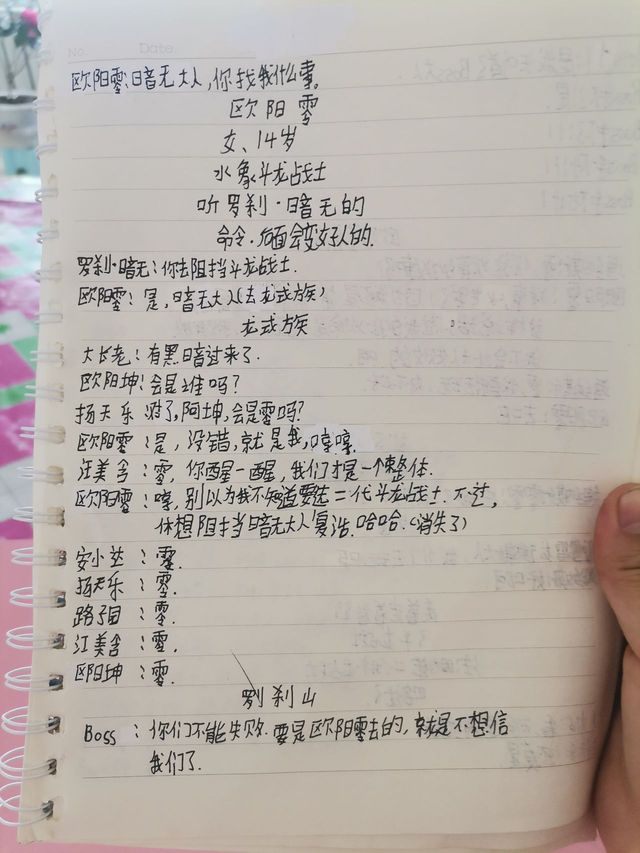 No.   Date.
欧阳零:暗无大人,你找我什么事。
欧阳零
女、14岁
水象斗龙战士
听罗刹·暗无的
命令.后面会变好人的.
罗刹·暗无:你去阻挡斗龙战士.
欧阳零:是,暗无大人(去龙武族)
龙武族
大长老:有黑暗过来了.
欧阳坤:会是谁吗?
扬天乐:对了,阿坤,会是零吗?
欧阳零:是,没错,就是我,哼哼.
汪美含:零,你醒一醒,我们才是一个整体.
欧阳零:哼,别以为我不知道 二代斗龙战士.不过,
休想阻挡暗无大人复浩.哈哈.(消失了)
安小芷:零.
扬天乐:零.
路子目:零.
江美含:零.
欧阳坤:零.
罗刹山
Boss:你们不能失败.要是欧阳零去的,就是不想信
我们了.